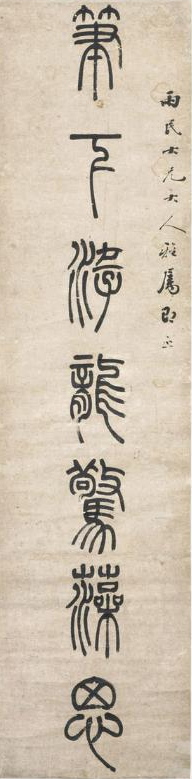 雨民大兄大人雅屬即正
筆下龍驚藻思